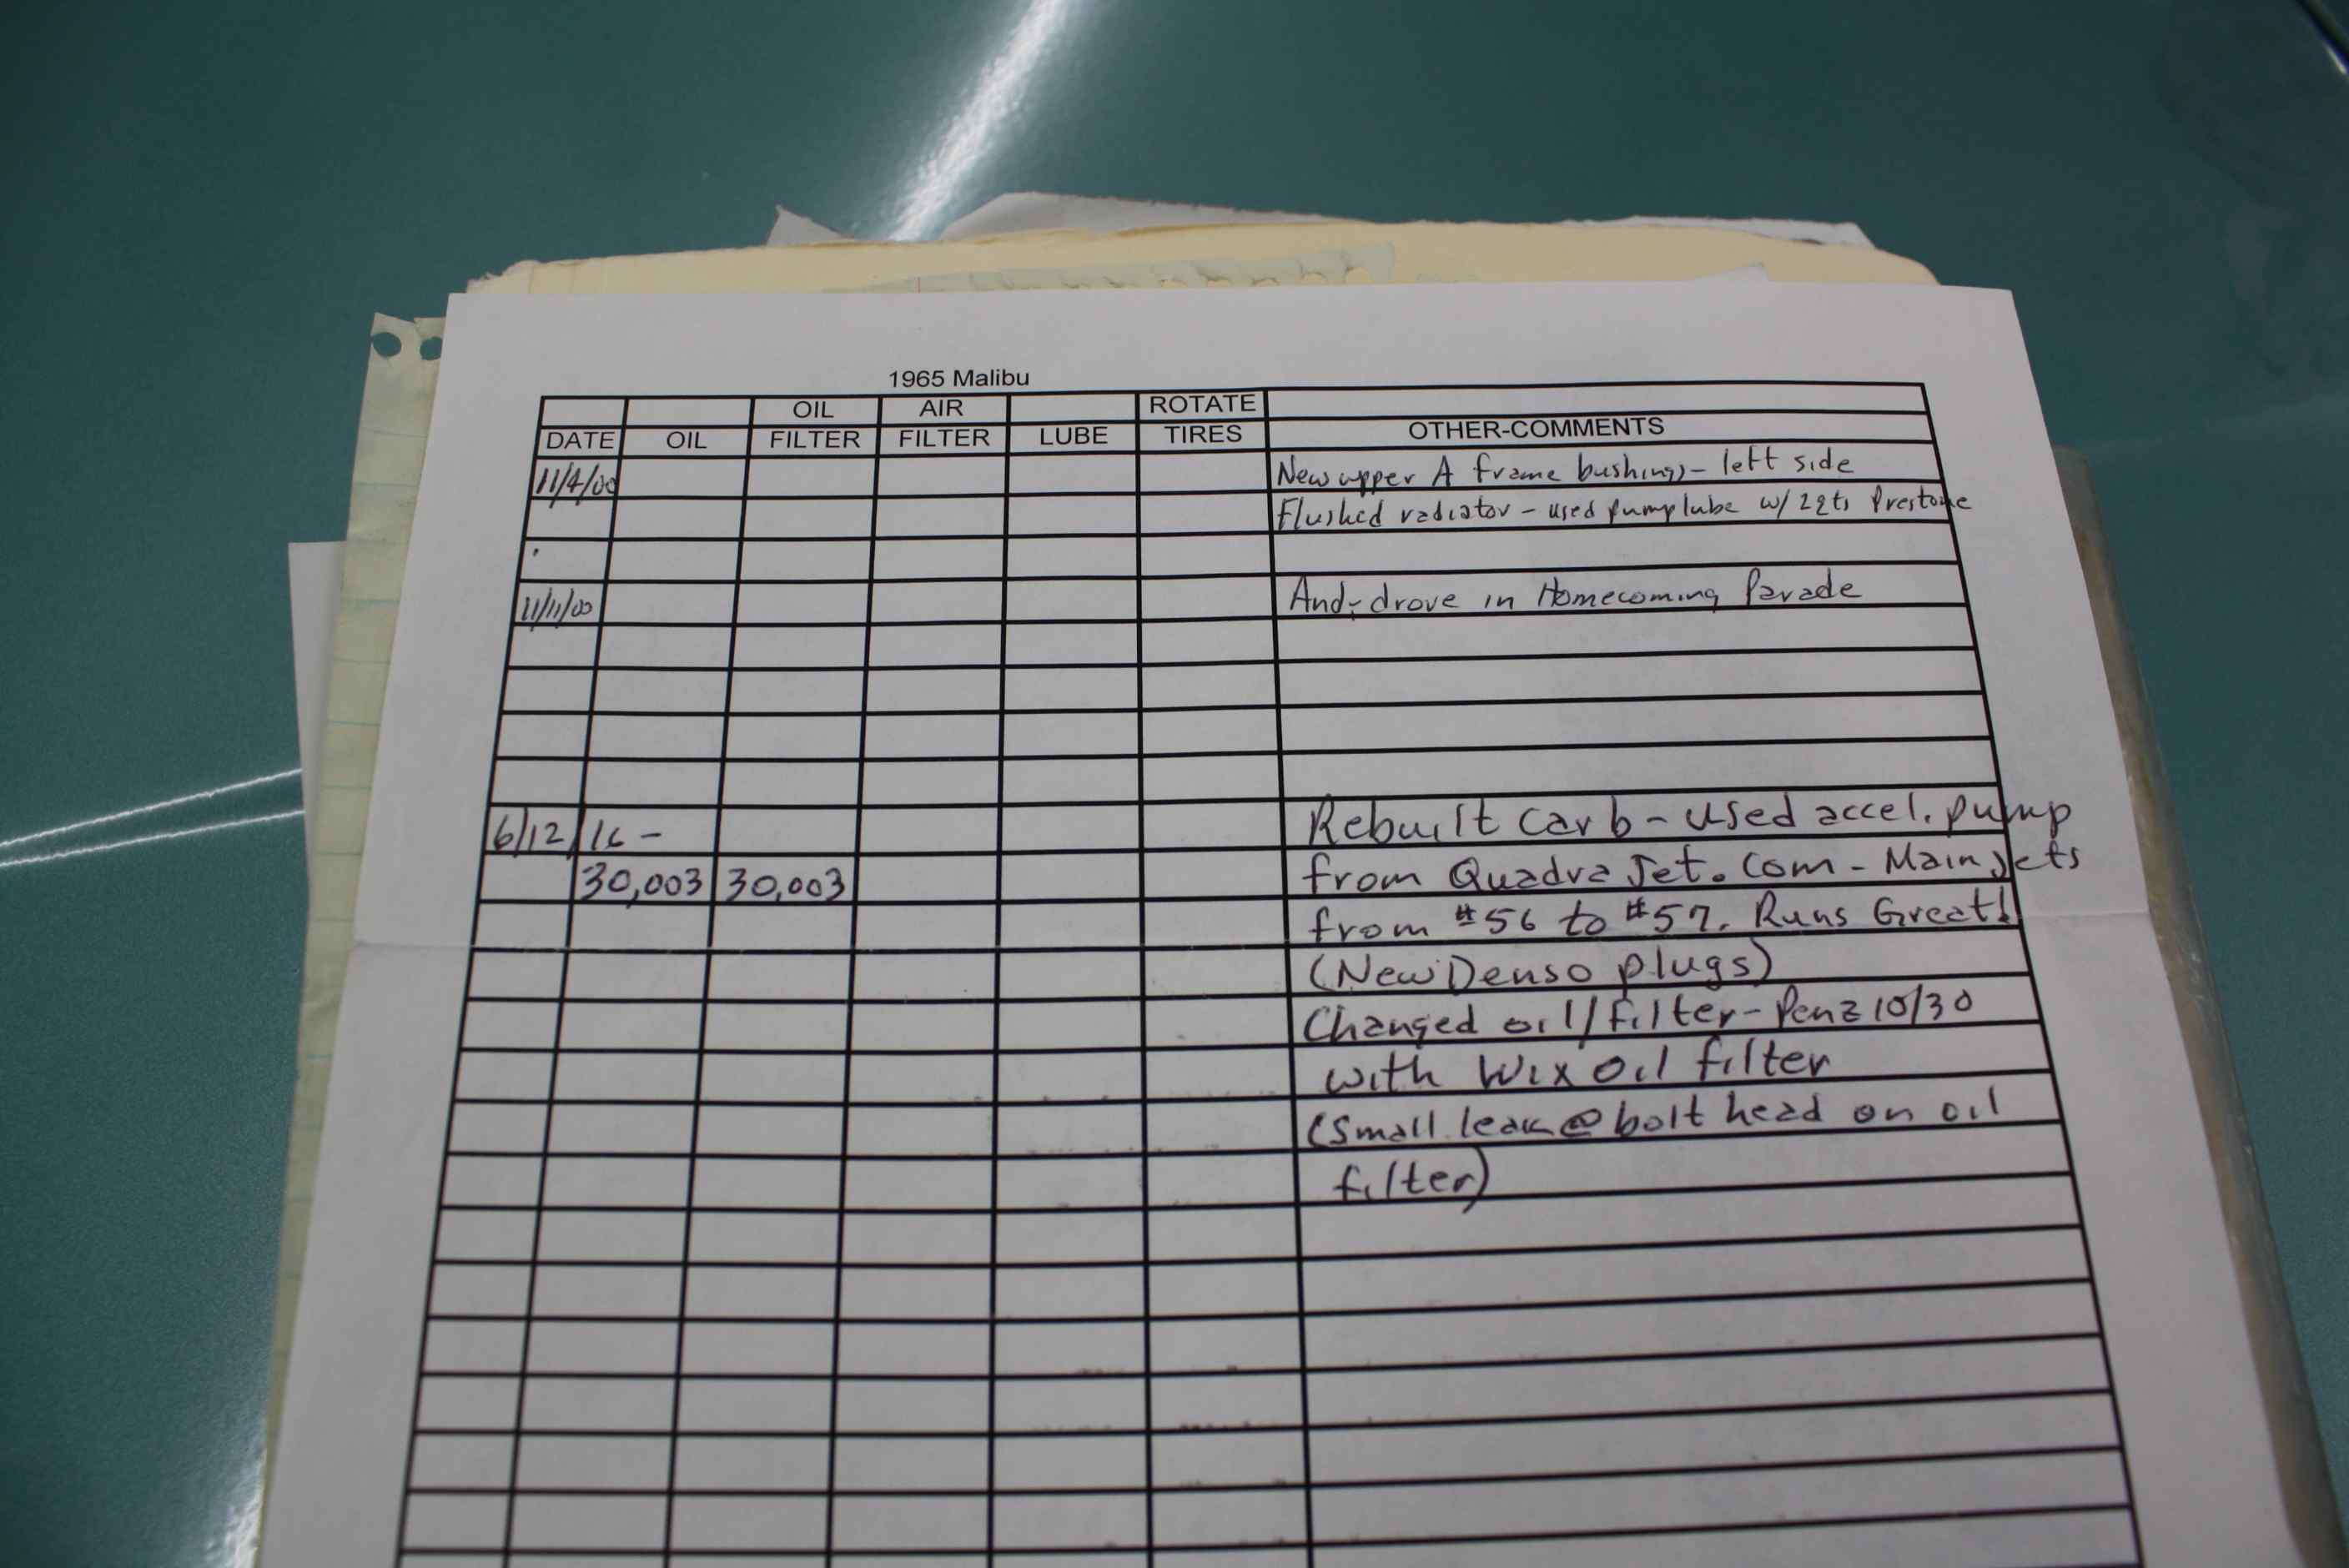 1965 Malibu
OIL AIR ROTATE
DATE OIL FILTER FILTER LUBE TIRES OTHER-COMMENTS
11/4/00 New upper A frame bushings - left side
Flushed radiator - used pump lube w/ 2 qts Prestone
11/11/00 Andy drove in Homecoming Parade
6/12/16 - Rebuilt Carb - used accel. pump
30,003 30,003 from QuadraJet.Com - Main Jets
from #56 to #57. Runs Great!
(New Denso plugs)
Changed oil/filter - Penz 10/30
with Wix Oil filter
(Small leak @ bolt head on oil
filter)